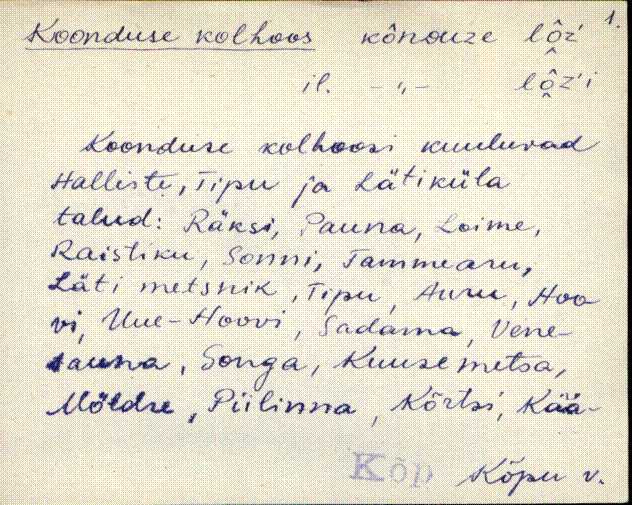 1.
Koonduse kolhoos kônduze lô̭z'
il. – „ – lô̭z'i
Koonduse kolhoosi kuuluvad
Halliste, Tipu ja Lätiküla
talud: Räksi, Pauna, Loime,
Raistiku, Sonni, Tammearu,
Läti metsnik, Tipu, Auru, Hoo
vi, Uue-Hoovi, Sadama, Vene-
sauna, Songa, Kuusemetsa,
Möldre, Piilinna, Kõrtsi, Kää-
Kõp Kõpu v.